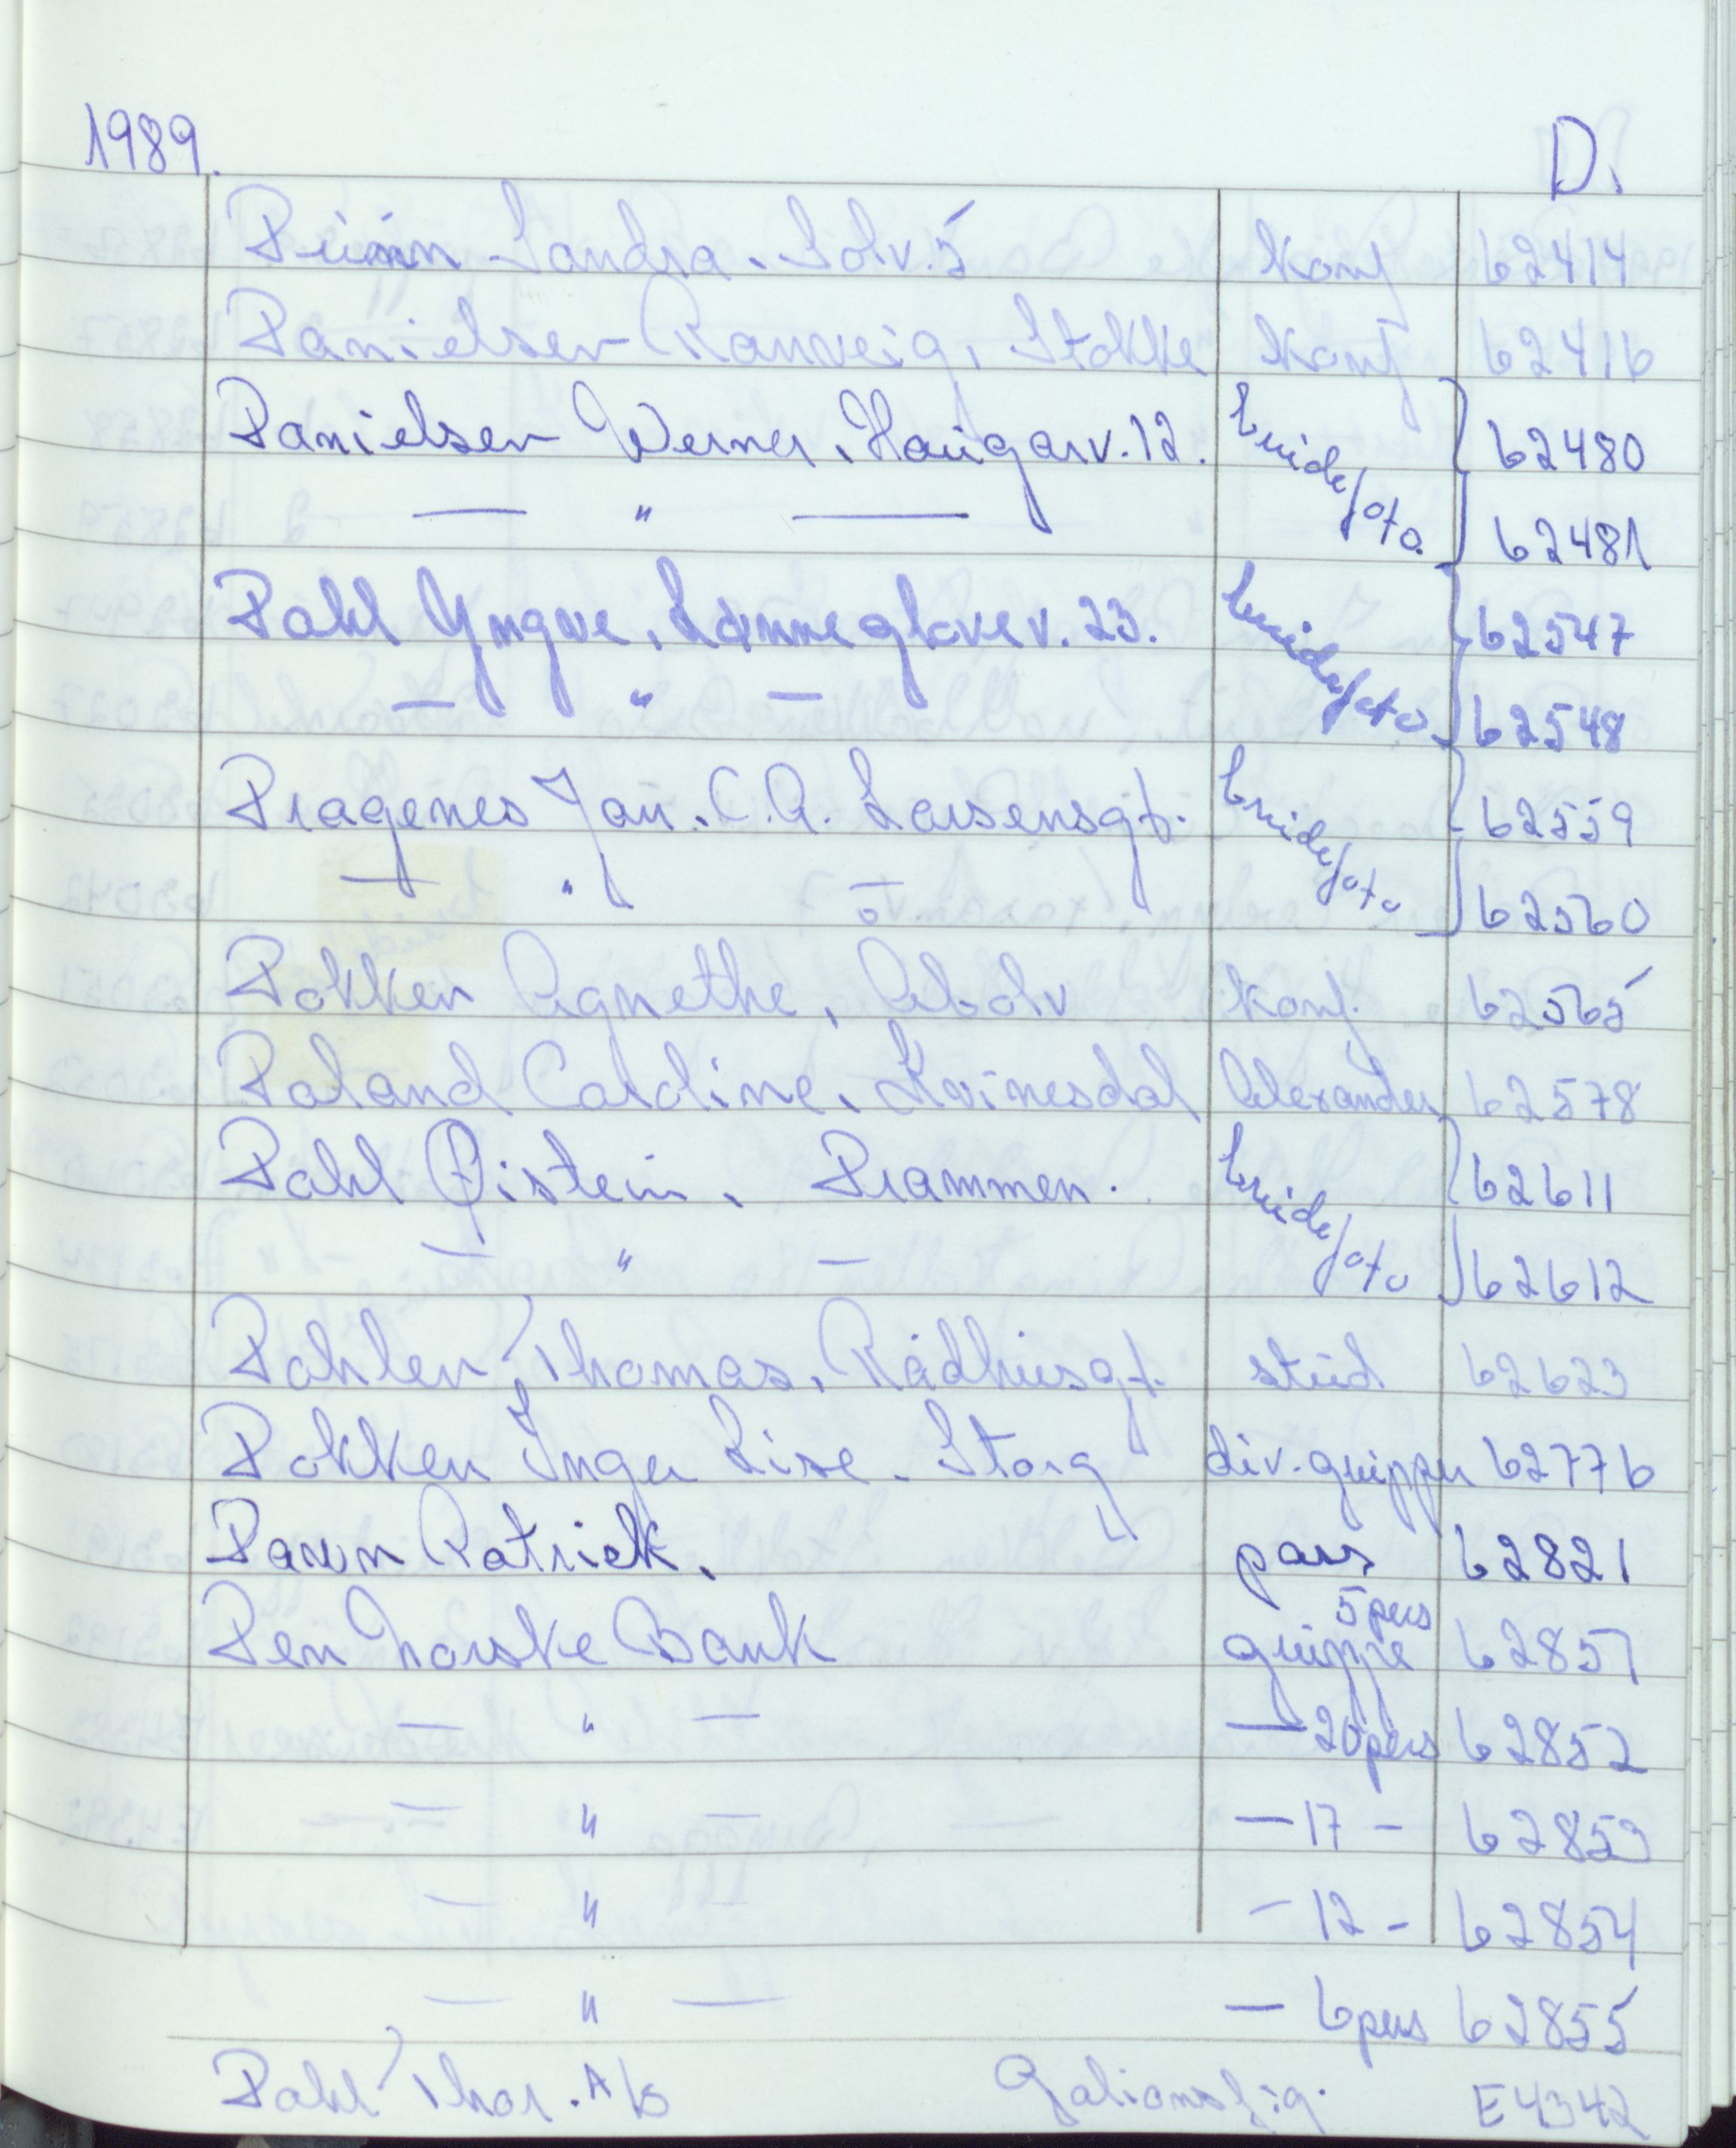 1989. D.
Sandra. Solv. 5 Konf 62414
Danielsen Ranveig, Stokke Konf 62416
Danielsen Werner, Haugarv. 12. brudefoto. 62480
— " — 62481
Dahl Yngve, Lønnegløvev. 23. brudefoto 62547
— " — 62548
Dragenes Jan. C.A. Larsensgt. brudefoto 62559
— " — 62560
Dokken Agnethe, Konf. 62565
Doland Cardine, Kvinesdal Alexander 62578
Dahl Øistein, Drammen. brudefoto 62611
— " — 62612
Dahlen, Thomas, Rådhusgt. stud. 62623
Dokken Inger Lise. Storg div. grupper 62776
Dawn Patrick. pass 62821
Den Norske Bank gruppe 5 pers 62851
— " — — 20 pers 62852
— " — — 17 — 62853
— " — — 12 - 62854
— " — — 6 pers 62855
Dahl Thor. A/S Galionsfig. E4342